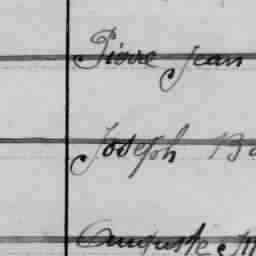 Pierre Jean
Joseph Ba
Auguste M